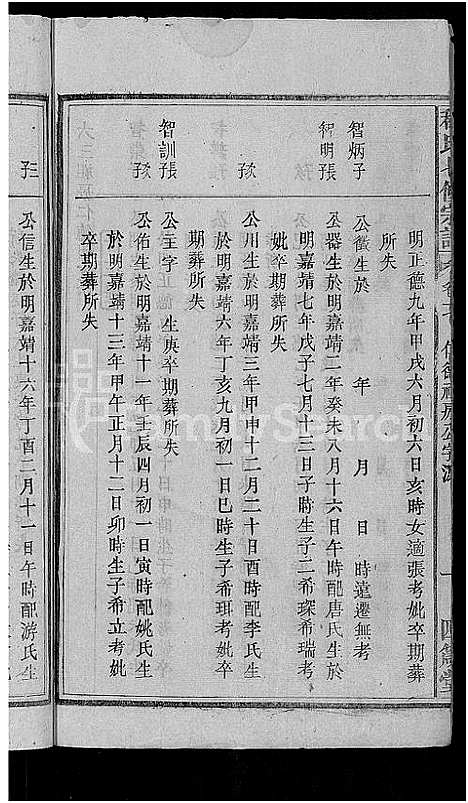 氏七修宗譜
四篤堂
明正德九年甲戌六月初六日亥時女適張考妣卒期葬
所失
智炳子
公徵生於 年 月 日 時遠遷無考
智明長子
公器生於明嘉靖二年癸未八月十六日午時配唐氏生於
明嘉靖七年戊子七月十三日子時生子二希琛希瑞考
妣卒期葬所失
次
公川生於明嘉靖三年甲申十二月二十日酉時配李氏生
於明嘉靖六年丁亥九月初一日巳時生子希珥考妣卒
期葬所失
智訓長
公主字 生庚卒期葬所失
次
公佑生於明嘉靖十一年壬辰四月初一日寅時配姚氏生
於明嘉靖十三年甲午正月十二日卯時生子希立考妣
卒期葬所失
三
公信生於明嘉靖十六年丁酉二月十一日午時配游氏生
Search